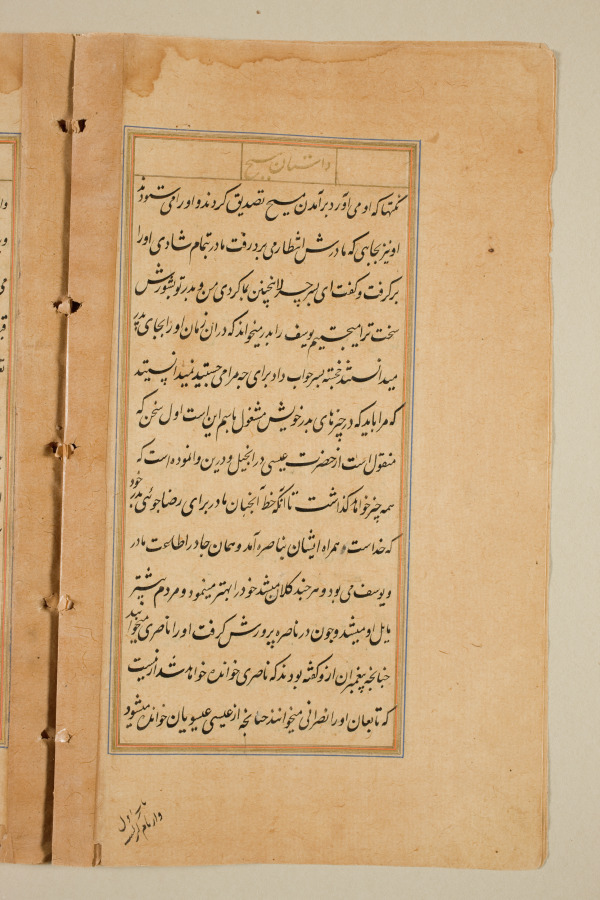 داستان مسیح
نکتها که او می آورد برآمدن مسیح تصدیق کردند و او را می ستودند
او نیز بجایی که مادرش انتظار می برد رفت مادر بتمام شادی او را
برگرفت و گفت ای پسر چرا اینچنین بما کردی من و پدر تو بشورش
سخت ترا میجستیم یوسف را پدر میخواند که در آن زمان او را بجای پدر
میدانستند خجسته پسر جواب داد برای چه مرا می جستید نمیدانستید
که مرا باید که در چیزهای پدر خویش مشغول باشم این است اول سخن که
منقول است از حضرت عیسی در انجیل و درین وانموده است که
همه چیز خواهد گذاشت تا آنکه خط آنجهان مادر برای رضاجوئی پدر خود
که خداست همراه ایشان بناصره آمد و همان جا در اطاعت مادر
و یوسف می بود و هر چند کلان میشد خود را بهتر مینمود و مردم بیشتر
مایل او میشد و چون در ناصره پرورش گرفت او را ناصری میخوانند
چنانچه پیغمبران ازو گفته بودند که ناصری خوانده خواهد شد ازینست
که تابعان او را نصرانی میخوانند چنانچه از عیسی عیسویان خوانده میشود